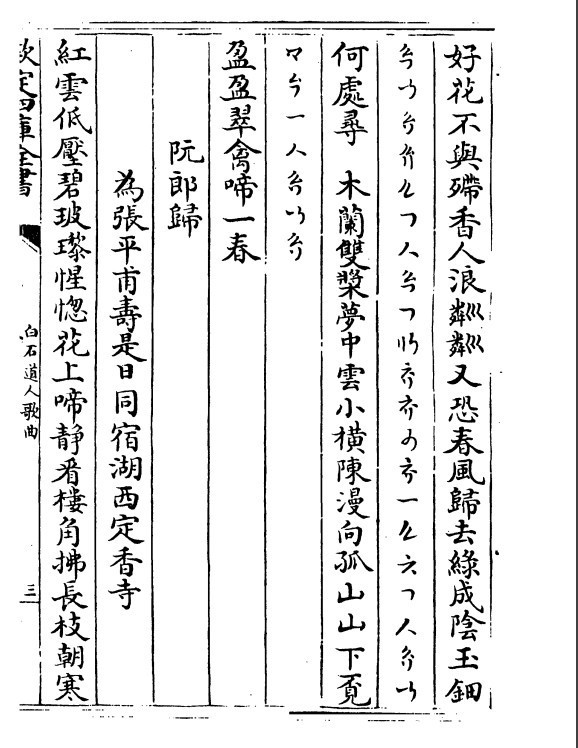 好花不與殢香人浪粼粼又恐春風歸去綠成陰玉鈿
何處尋　木蘭雙槳夢中雲小橫陳漫向孤山山下覔
盈盈翠禽啼一春
阮郎歸
為張平甫壽是日同宿湖西定香寺
紅雲低壓碧玻瓈惺惚花上啼靜看樓角拂長枝朝寒
欽定四庫全書
白石道人歌曲
三